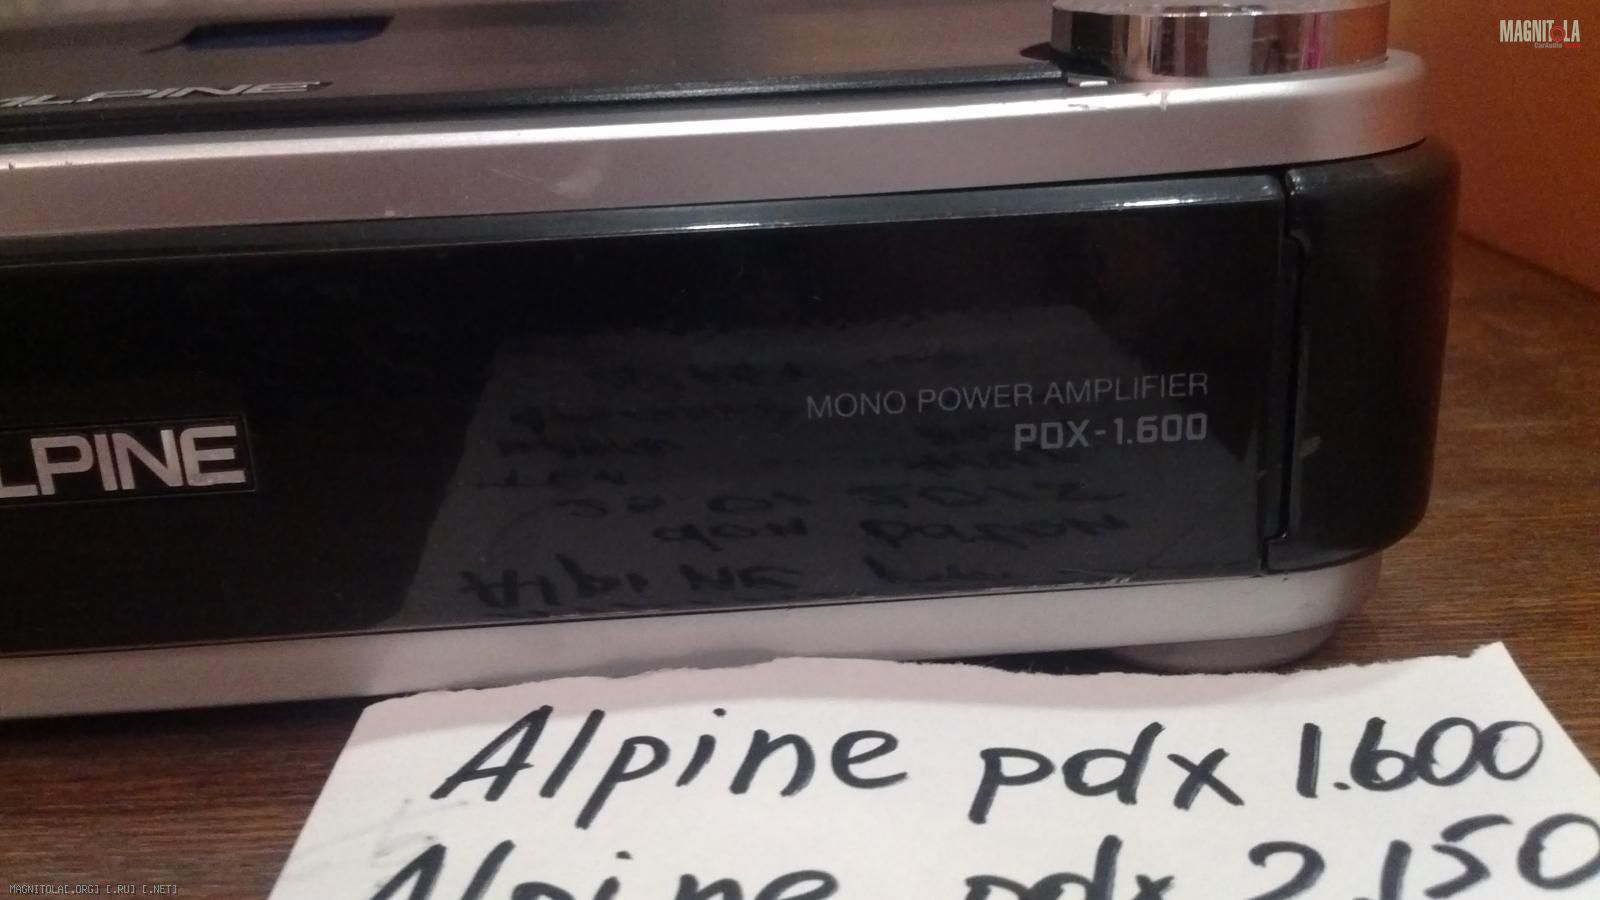 MAGNITOLA
CarAudio
ALPINE
LPINE
MONO POWER AMPLIFIER
PDX-1.600
Alpine pdx 1.600
Alpine pdx 2.150
MAGNITOLA[.ORG] [.RU] [.NET]